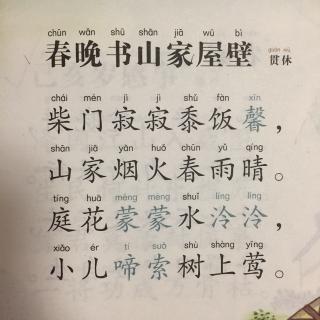 chūn wǎn shū shān jiā wū bì
春晚书山家屋壁
guàn xiū
贯休
chái mén jì jì shǔ fàn xīn
柴门寂寂黍饭馨，
shān jiā yān huǒ chūn yǔ qíng
山家烟火春雨晴。
tíng huā méng méng shuǐ líng líng
庭花蒙蒙水泠泠，
xiǎo ér tí suǒ shù shàng yīng
小儿啼索树上莺。